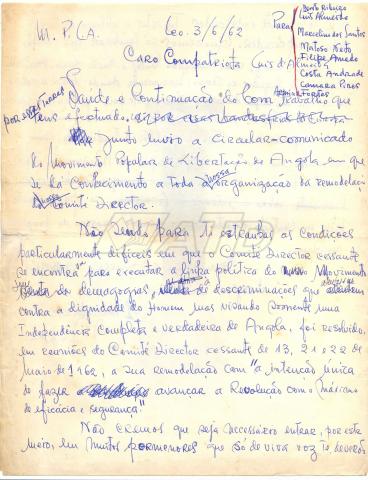 M. P. L. A.
Leo. 3/6/62
Para
Bento Ribeiro
Luis Almeida
Marcelino dos Santos
Matoso Neto
Filipe Amado
Costa Andrade
Camara Pires
Fortes
Caro Compatriota Luis d'Almeida
Saúde e Continuação do bom trabalho que
por esses lados
tens efectuado,
Junto envio a Circular-comunicado
do Movimento Popular de Libertação de Angola em que
se dá conhecimento a toda a nossa organização da remodelação
do Comité Director.
Não sendo para ti estranhas as condições
particularmente difíceis em que o Comité Director cessante
se encontra para executar a linha política do Movimento
de demagogias, de descriminações que
contra a dignidade do Homem mas visando somente uma
Independência completa e verdadeira de Angola, foi resolvido,
em reuniões do Comité Director cessante de 13, 21 e 22 de
Maio de 1962, a sua remodelação com "a intenção única
de fazer avançar a Revolução com o máximo
de eficácia e segurança"
Não cremos que seja necessário entrar, por este
meio, em muitos pormenores que só de viva voz te deverão